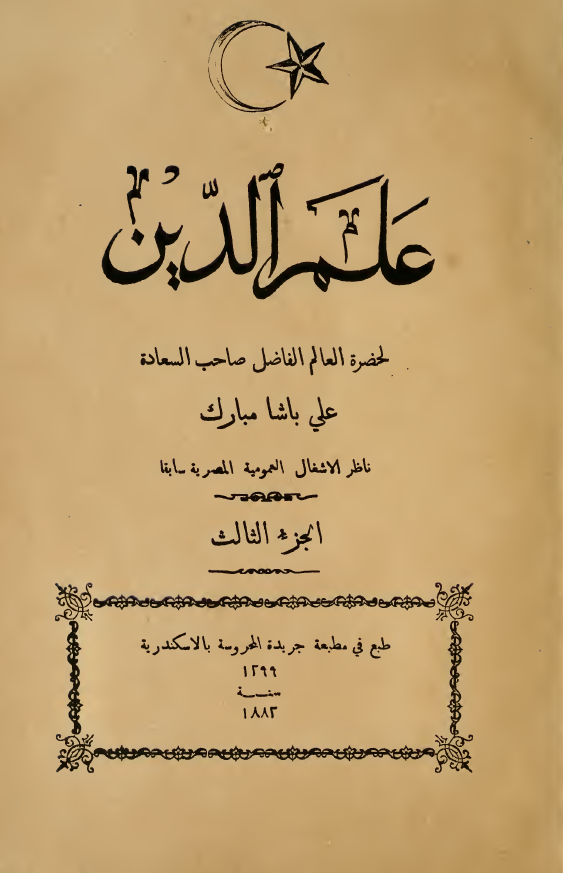 علم الدين
لحضرة العالم الفاضل صاحب السعادة
علي باشا مبارك
ناظر الاشغال العمومية المصرية سابقا
الجزء الثالث
طبع في مطبعة جريدة المحروسة بالاسكندرية
١٢٩٩
سنة
١٨٨٢